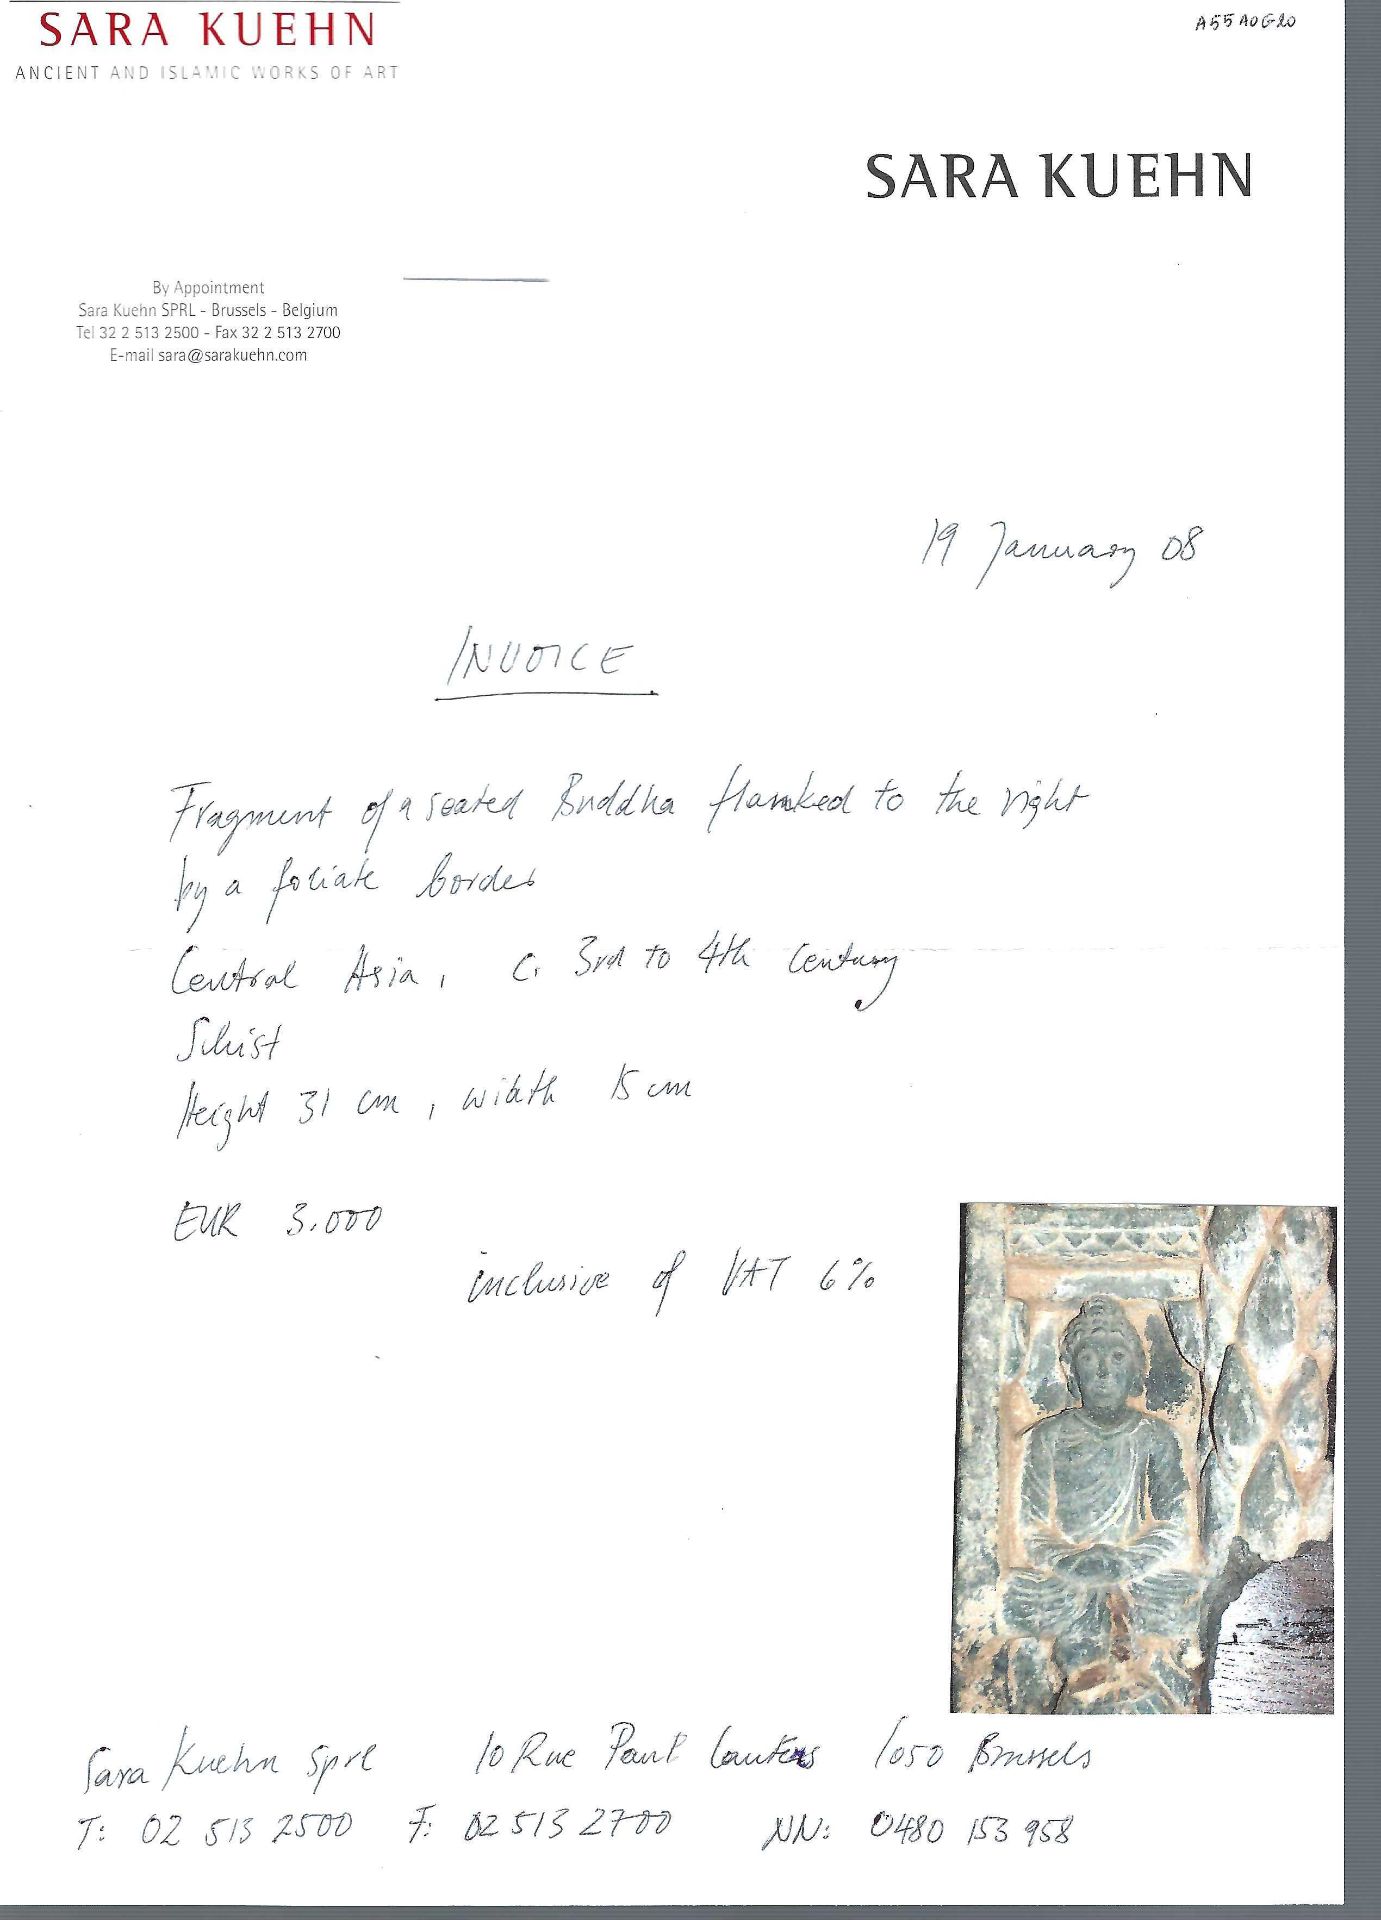 SARA KUEHN
ANCIENT AND ISLAMIC WORKS OF ART
A55A0G20
SARA KUEHN
By Appointment
Sara Kuehn SPRL - Brussels - Belgium
Tel 32 2 513 2500 - Fax 32 2 513 2700
E-mail sara@sarakuehn.com
19 January 08
INVOICE
Fragment of a seated Buddha flanked to the right
by a foliate border
Central Asia, c. 3rd to 4th century
Schist
Height 31 cm, width 15 cm
EUR 3.000
inclusive of VAT 6%
Sara Kuehn Sprl 10 Rue Paul Lauters 1050 Brussels
T: 02 513 2500 F: 02 513 2700 NN: 0480 153 958